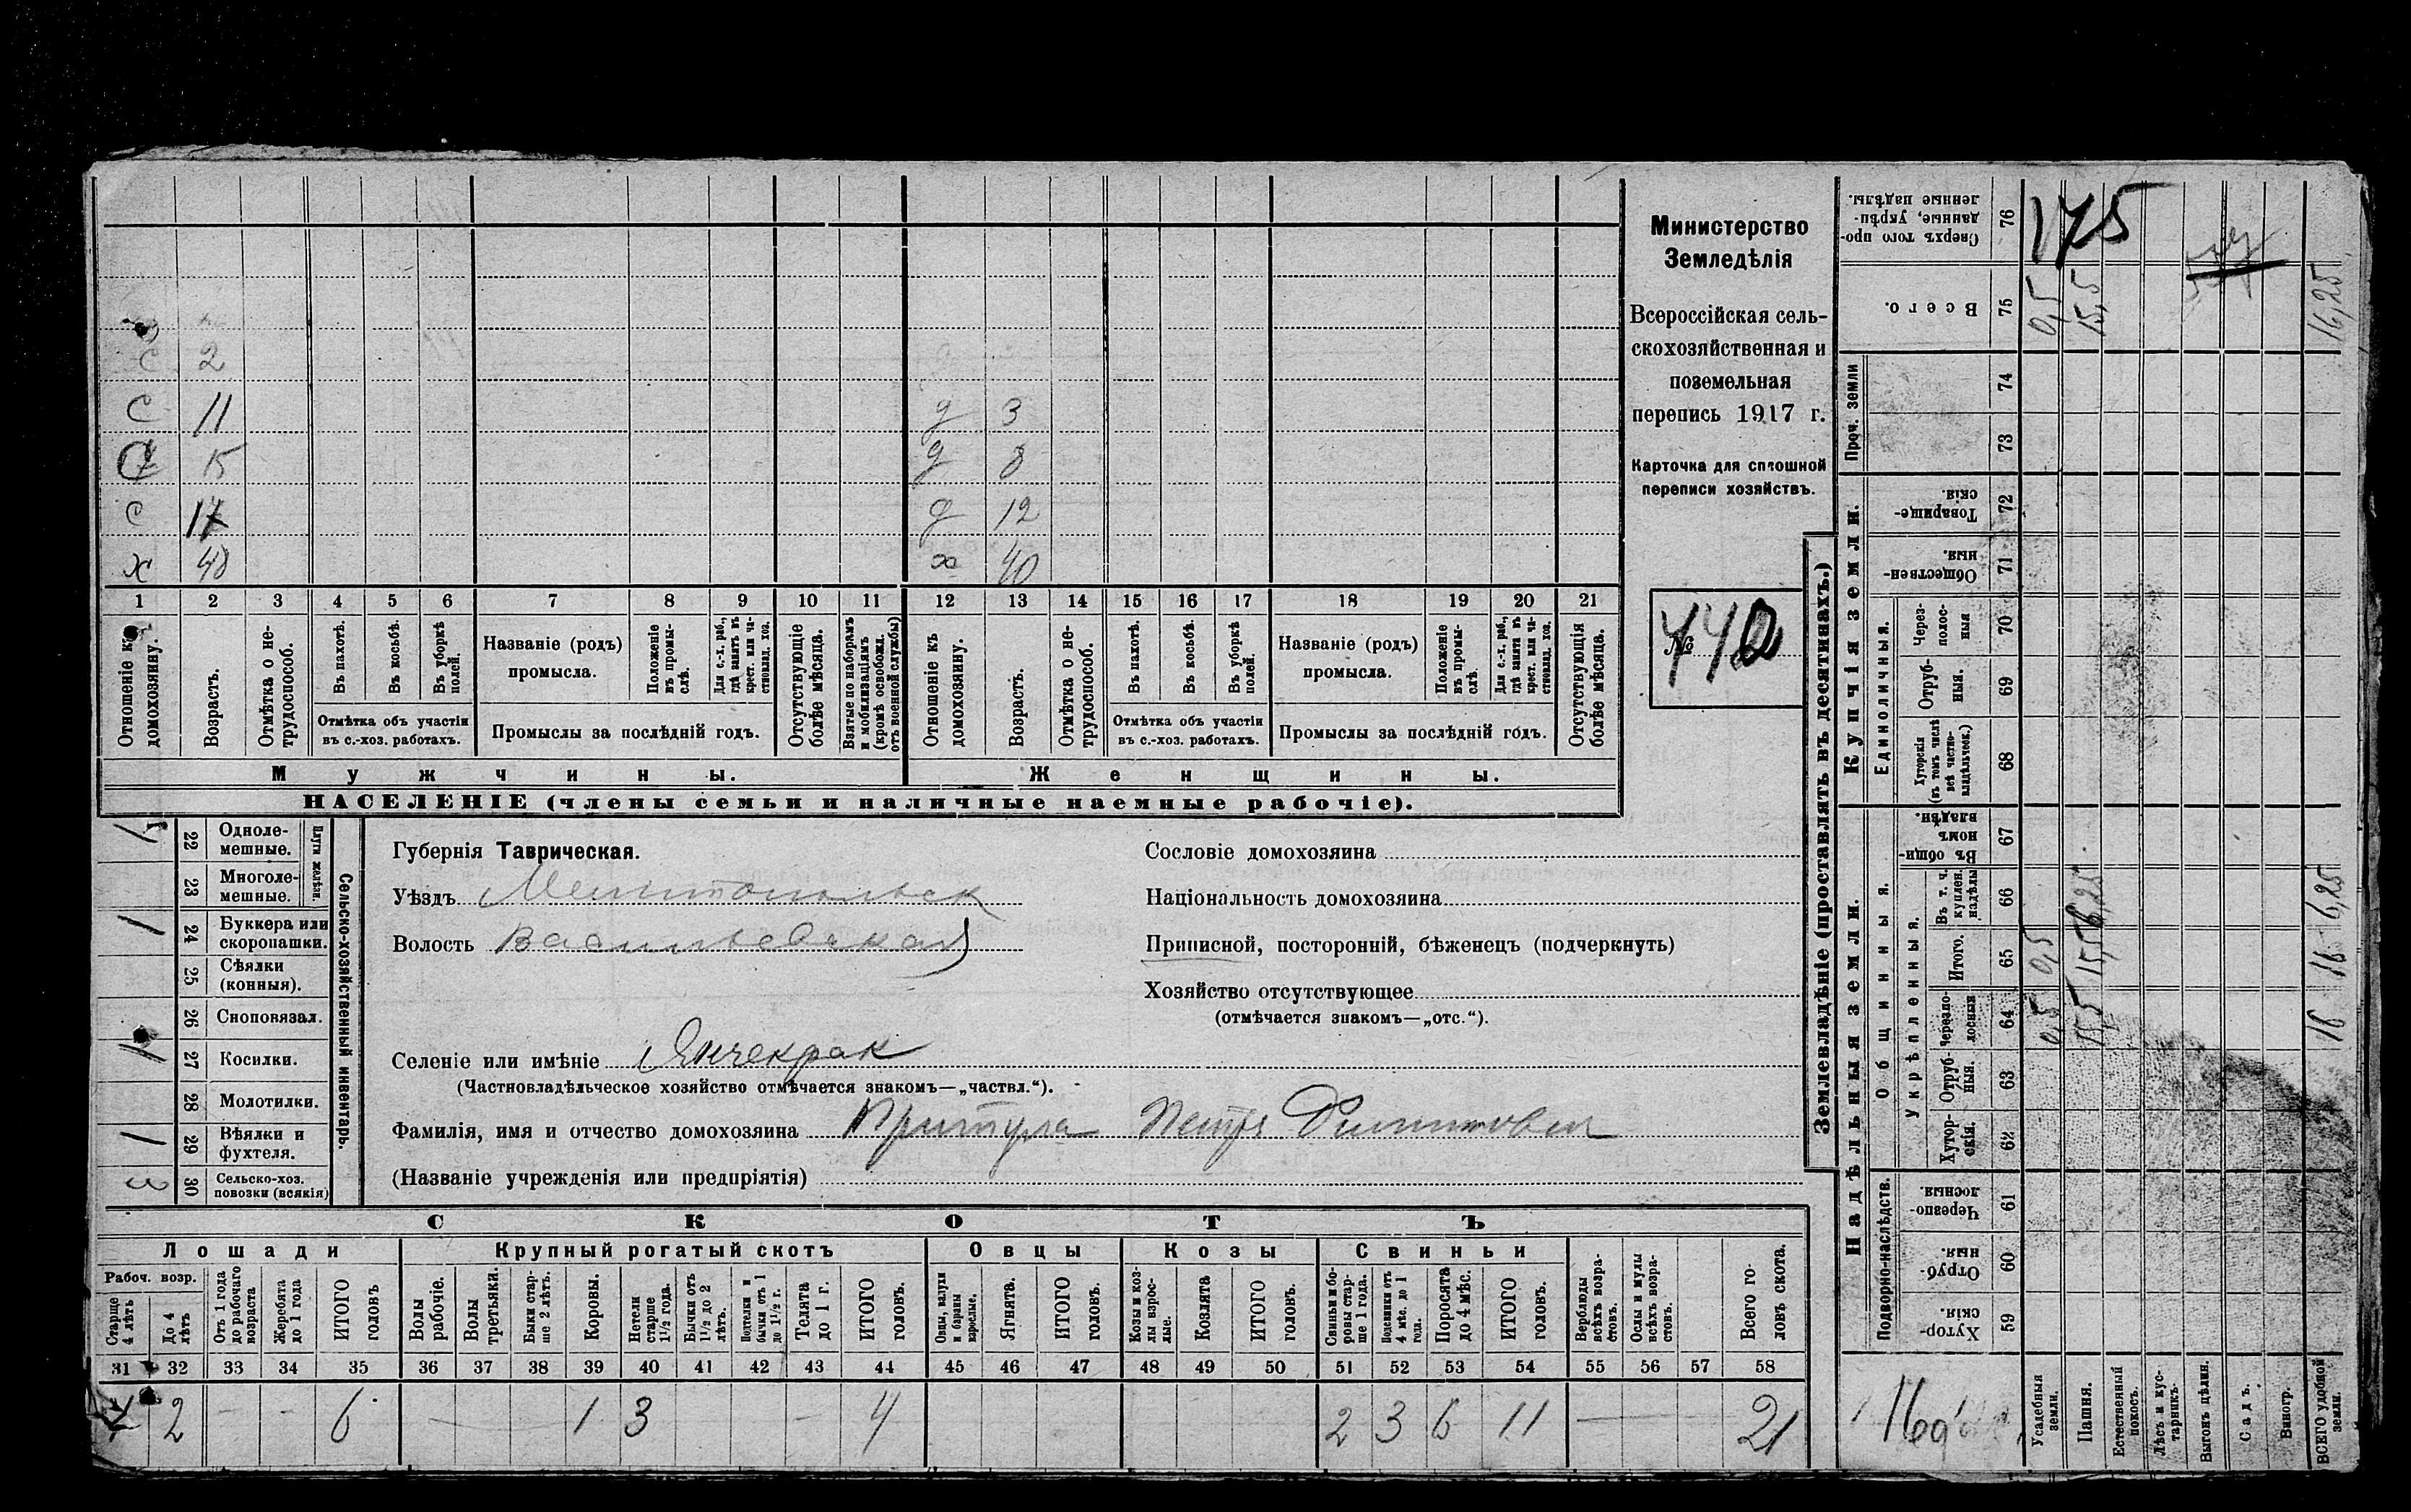 с 2
с 11 д 3
с 15 д 8
с 17 д 12
х 48 х 40
1 2 3 4 5 6 7 8 9 10 11 12 13 14 15 16 17 18 19 20 21
Отношеніе къ домохозяину.
Возрастъ.
Отмѣтка о нетрудоспособ.
Въ пахотѣ.
Въ косьбѣ.
Въ уборкѣ полей.
Отмѣтка объ участіи
въ с.-хоз. работахъ.
Названіе (родъ)
промысла.
Положеніе въ промыслѣ.
Для с.-х. раб., гдѣ занятъ въ крест. или частновлад. хоз.
Промыслы за послѣдній годъ.
Отсутствующіе болѣе мѣсяца.
Взятые по наборамъ и мобилизаціямъ (кромѣ освобожд. отъ военной службы)
Отношеніе къ домохозяину.
Возрастъ.
Отмѣтка о нетрудоспособ.
Въ пахотѣ.
Въ косьбѣ.
Въ уборкѣ полей.
Отмѣтка объ участіи
въ с.-хоз. работахъ.
Названіе (родъ)
промысла.
Положеніе въ промыслѣ.
Для с.-х. раб., гдѣ занятъ въ крест. или частновлад. хоз.
Промыслы за послѣдній годъ.
Отсутствующія болѣе мѣсяца.
Мужчины. Женщины.
НАСЕЛЕНІЕ (члены семьи и наличные наемные рабочіе).
Министерство
Земледѣлія
Всероссійская сель-
скохозяйственная и
поземельная
перепись 1917 г.
Карточка для сплошной
переписи хозяйствъ.
№ 442
Сельско-хозяйственный инвентарь.
Плуги желѣзн.
22 Одноле-
мешные.
23 Многоле-
мешные.
1 24 Буккера или
скоропашки.
25 Сѣялки
(конныя).
26 Сноповязал.
1 27 Косилки.
28 Молотилки.
1 29 Вѣялки и
фухтеля.
3 30 Сельско-хоз.
повозки (всякія)
Губернія Таврическая.
Уѣздъ Мелитопольск
Волость Васильевская
Селеніе или имѣніе Янчекрак
(Частновладѣльческое хозяйство отмѣчается знакомъ—„частвл.“).
Фамилія, имя и отчество домохозяина Притула Петръ Филиппович
(Названіе учрежденія или предпріятія)
Сословіе домохозяина
Національность домохозяина
Приписной, посторонній, бѣженецъ (подчеркнуть)
Хозяйство отсутствующее
(отмѣчается знакомъ—„отс.“).
СКОТЪ
Лошади Крупный рогатый скотъ Овцы Козы Свиньи
Рабоч. возр.
Старше 4 лѣтъ
До 4 лѣтъ
Отъ 1 года до рабочаго возраста
Жеребята до 1 года
ИТОГО головъ
Волы рабочіе.
Волы третьяки.
Быки старше 2 лѣтъ.
Коровы.
Нетели старше 1½ года.
Бычки отъ 1½ до 2 лѣтъ.
Подтелки и бычки отъ 1 до 1½ г.
Телята до 1 г.
ИТОГО головъ.
Овцы, валухи и бараны взрослые.
Ягнята.
ИТОГО головъ.
Козы и козлы взрослые.
Козлята
ИТОГО головъ.
Свиньи и боровы старше 1 года.
Подсвинки отъ 4 мѣс. до 1 года.
Поросята до 4 мѣс.
ИТОГО головъ.
Верблюды всѣхъ возрастовъ.
Ослы и мулы всѣхъ возрастовъ.
Всего головъ скота.
31 32 33 34 35 36 37 38 39 40 41 42 43 44 45 46 47 48 49 50 51 52 53 54 55 56 57 58
4 2 - - 6 - 1 3 - 4 2 3 6 11 - - - 21
Землевладѣніе (проставлять въ десятинахъ.)
Сверхъ того проданные, укрѣпленные надѣлы. 76 175
Всего. 75 0,5 15,5 16,25
Проч. земли 74
73
Купчія земли.
Товарищескія. 72
Общественныя. 71
Единоличныя.
Черезполосныя 70
Отрубныя. 69
Хуторскія (въ томъ числѣ всѣ частновладѣльческ.) 68
Надѣльныя земли.
Общинныя.
Въ общинномъ владѣн. 67
Укрѣпленныя.
Въ т. ч. куплен. надѣлы 66 6,25 6,25
Итого. 65 0,5 15,5 16
Черезполосныя 64 0,5 15,5 16
Отрубныя. 63
Хуторскія. 62
Подворно-наслѣдств.
Черезполосныя. 61
Отрубныя. 60
Хуторскія. 59
Усадебныя земли.
Пашня.
Естественный покосъ.
Лѣсъ и кустарникъ.
Выгонъ цѣлин.
Садъ.
Виногр.
ВСЕГО удобной земли.